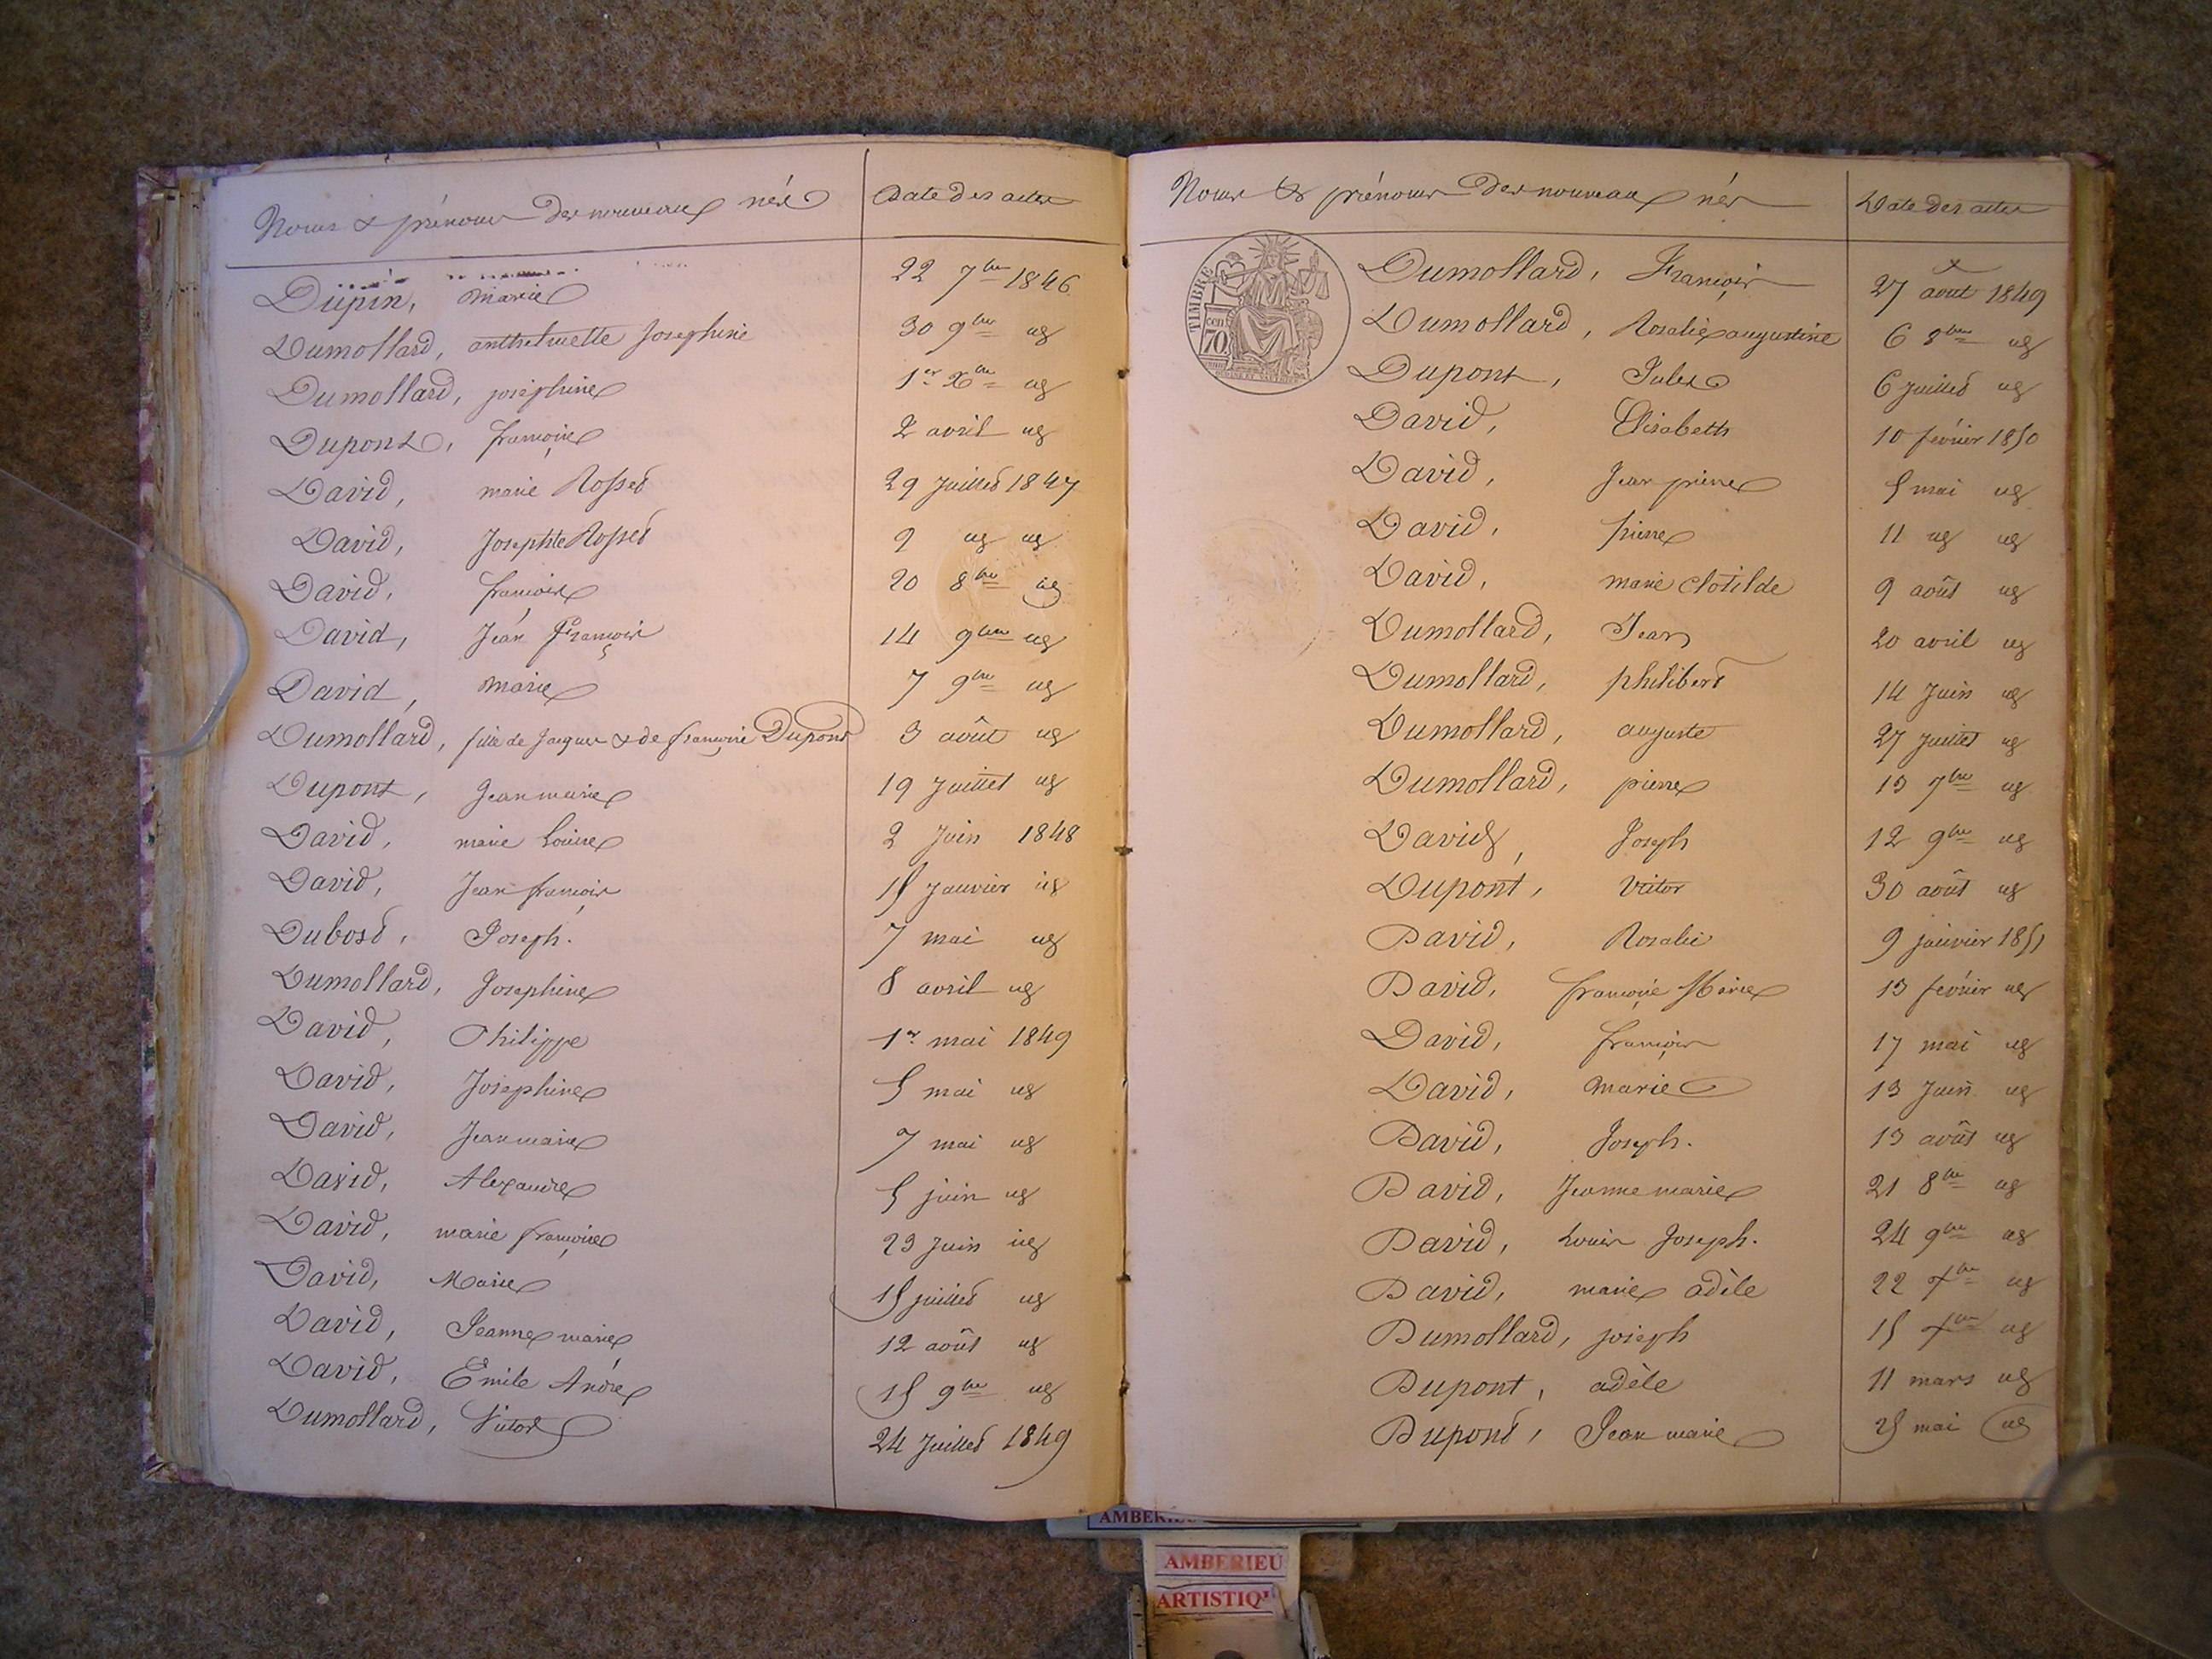 Noms & prénoms des nouveaux nés Date des actes
Dupin, marie 22 7bre 1846
Dumollard, anthelmette Josephine 30 9bre id
Dumollard, joséphine 1er Xbre id
Dupont, françoise 2 avril id
David, marie Rosset 29 Juillet 1847
David, Josephte Rosset 9 id id
David, françoise 20 8bre id
David, Jean François 14 9bre id
David, marie 7 9bre id
Dumollard, fille de Jacques & de françoise Dupont 3 août id
Dupont, Jean marie 19 Juillet id
David, marie Louise 2 Juin 1848
David, Jean françois 15 Janvier id
Dubost, Joseph. 7 mai id
Dumollard, Josephine 8 avril id
David, Philippe 1er mai 1849
David, Joséphine 5 mai id
David, Jean marie 7 mai id
David, Alexandre 5 juin id
David, marie françoise 23 Juin id
David, Marie 15 juillet id
David, Jeanne marie 12 août id
David, Emile André 15 9bre id
Dumollard, Victor 24 Juillet 1849
Noms & prénoms des nouveaux nés Date des actes
TIMBRE
70
Dumollard, François 27 août 1849
Dumollard, Rosalie augustine 6 8bre id
Dupont, Jules 6 juillet id
David, Elisabeth 10 février 1850
David, Jean pierre 5 mai id
David, pierre 11 id id
David, marie clotilde 9 août id
Dumollard, Jean 20 avril id
Dumollard, philibert 14 Juin id
Dumollard, auguste 27 Juillet id
Dumollard, pierre 13 7bre id
David, Joseph 12 9bre id
Dupont, Victor 30 août id
David, Rosalie 9 janvier 1851
David, françoise Marie 13 février id
David, françois 17 mai id
David, marie 13 Juin id
David, Joseph. 13 août id
David, Jeanne marie 21 8bre id
David, Louis Joseph. 24 9bre id
David, marie adèle 22 Xbre id
Dumollard, joseph 15 Xbre id
Dupont, adèle 11 mars id
Dupont, Jean marie 25 mai id
AMBERIEU
AMBERIEU
ARTISTIQU